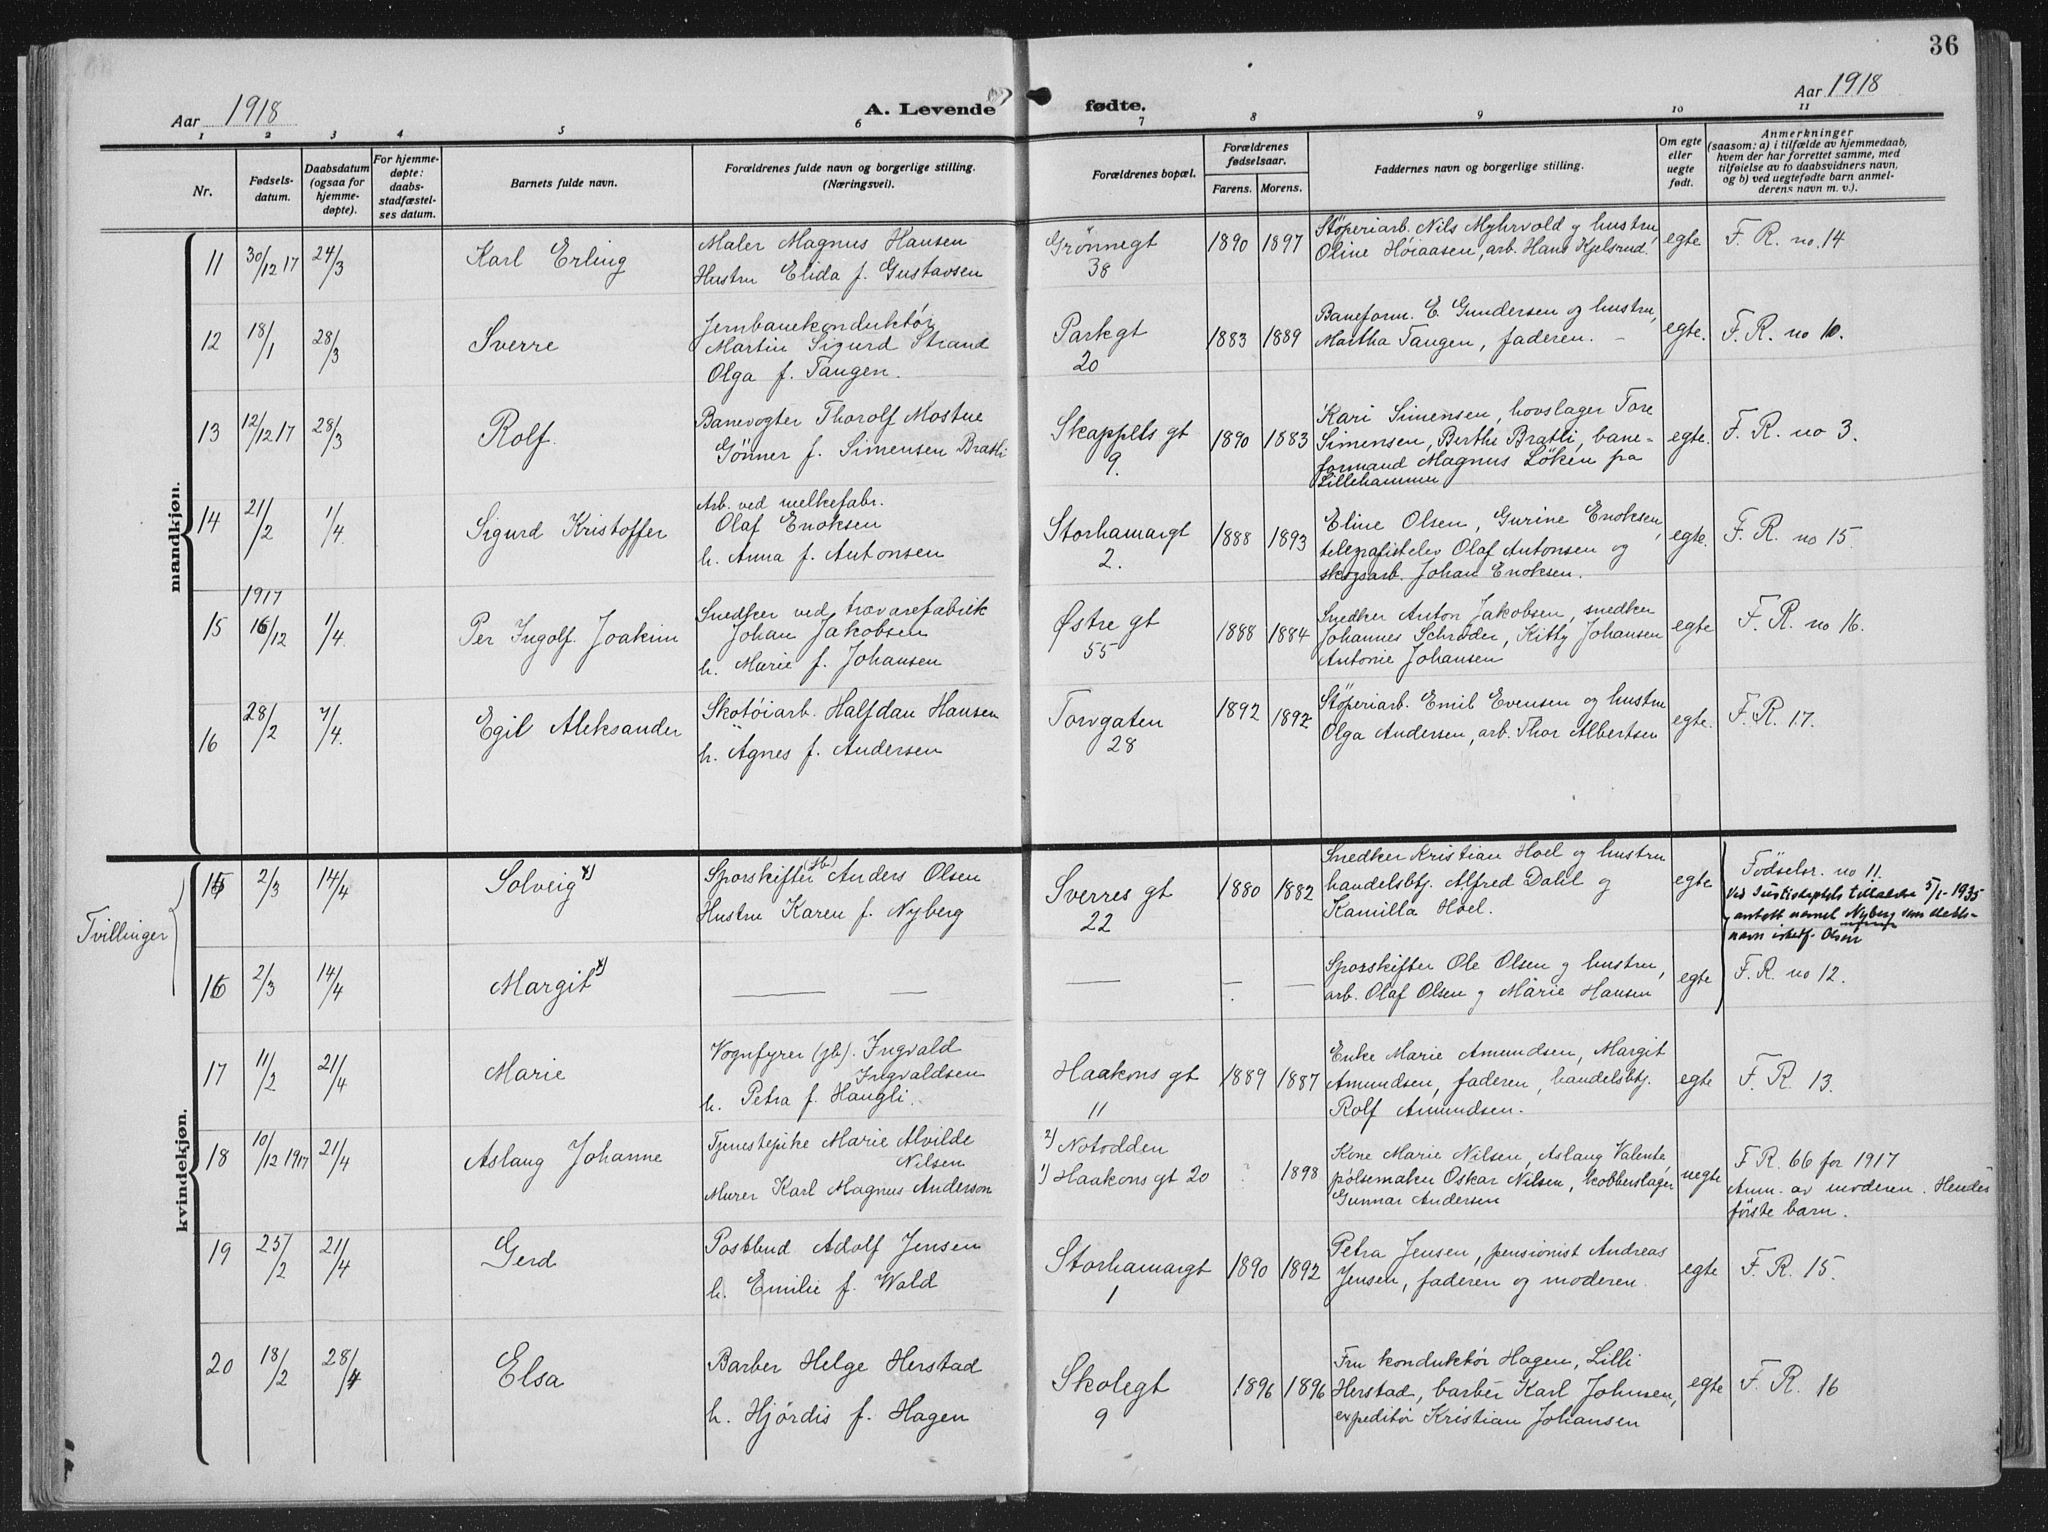 36
Aar 1918
A. Levende
fødte.
Aar 1918
1 2 3 4 5 6 7 8 9 10 11
Nr.
Fødsels-
datum.
Daabsdatum
(ogsaa for
hjemme-
døpte).
For hjemme-
døpte:
daabs-
stadfæstel-
ses datum.
Barnets fulde navn.
Forældrenes fulde navn og borgerlige stilling.
(Næringsvei).
Forældrenes bopæl.
Forældrenes
fødselsaar.
Farens. Morens.
Faddernes navn og borgerlige stilling.
Om egte
eller
uegte
født.
Anmerkninger
(saasom: a) i tilfælde av hjemmedaab,
hvem der har forrettet samme, med
tilføielse av to daabsvidners navn,
og b) ved uegtefødte barn anmel-
derens navn m. v.).
mandkjøn.
11 30/12 17 24/3 Karl Erling
Maler Magnus Hansen
Hustru Elida f. Gustavsen
Grønnegt
38
1890 1897
Støperiarb. Nils Myhrvold g hustru,
Oline Høiaasen, arb. Hans Kjelsrud.
egte F. R. no. 14
12 18/1 28/3 Sverre
Jernbanekonduktør
Martin Sigurd Strand
Olga f. Tangen.
Parkgt
20
1883 1889
Baneform. E. Gundersen og hustru,
Martha Tangen, faderen. –
egte. F. R. no 10.
13 12/12 17 28/3 Rolf.
Banevogter Thorolf Mostue
Gønner f. Simensen Bratli
Skappels gt
9.
1890 1883
Kari Simensen, hovslager Tore
Simensen, Berthe Bratli, bane-
formand Magnus Løken pa
Lillehammer
egte. F. R. no 3.
14 21/2 1/4 Sigurd Kristoffer
Arb. ved melkefabr.
Olaf Enoksen
h. Anna f. Antonsen
Storhamargt
2.
1888 1893
Eline Olsen, Gurine Enoksen,
telegrafistelev Olaf Antonsen og
skogsarb. Johan Enoksen.
egte. F. R. no 15.
1917
15 16/12 1/4 Per Ingolf Joakim
Snedker ved trævarefabrik
Johan Jakobsen
h. Marie f. Johansen
Østre gt
55
1888 1884
Snedker Anton Jakobsen, snedker
Johannes Schrøder, Kitty Johansen
Antonie Johansen
egte F. R. no 16.
16 28/2 7/4. Egil Aleksander
Skotøiarb. Halfdan Hansen
h. Agnes f. Andersen
Torvgaten
28
1892 1892
Støperiarb. Emil Evensen og hustru
Olga Andersen, arb. Thor Albertsen
egte. F. R. 17.
kvindekjøn.
Tvillinger
15 2/3 14/4 Solveig x)
Sporskifter (jb) Anders Olsen
Hustru Karen f. Nyberg
Sverres gt
22
1880 1882
Snedker Kristian Hoel og hustru
handelsbtj. Alfred Dahl og
Kamilla Hoel.
egte
Fødselsr. no 11.
Ved Justisdeptets tilladelse 5/1-1935
antatt navnet Nyberg som slekts-
navn istedf. Olsen
16 2/3 14/4 Margit x)
— —
—
— —
Sporskifter Ole Olsen g hustru,
arb. Olaf Olsen g Marie Hansen
egte F. R. no 12.
17 11/2 21/4 Marie
Vognfyrer (jb). Ingvald
Ingvaldsen
h. Petra f. Haugli.
Haakons gt
11
1889 1887
Enke Marie Amundsen, Margit
Amundsen, faderen, handelsbtj.
Rolf Amundsen.
egte F. R. 13.
18 10/12 1917 21/4 Aslaug Johanne
Tjenestepike Marie Alvilde
Nilsen
Murer Karl Magnus Anderson
2) Notodden
1) Haakons gt 20
1898
Kone Marie Nilsen, Aslaug Valente
pølsemaker Oskar Nilsen, kobberslager
Gunnar Andersen
uegte
F. R. 66 for 1917
Anm. av moderen. Hendes
første barn.
19 25/2 21/4 Gerd
Postbud Adolf Jensen
h. Emilie f. Wold
Storhamargt
1
1890 1892
Petra Jensen, pensionist Andreas
Jensen, faderen og moderen.
egte F. R. 15.
20 18/2 28/4 Elsa
Barber Helge Herstad
h. Hjørdis f. Hagen
Skolegt
9
1896 1896
Fru konduktør Hagen, Lilli
Herstad, barber Karl Johnsen,
expeditør Kristian Johansen
egte F. R. 16